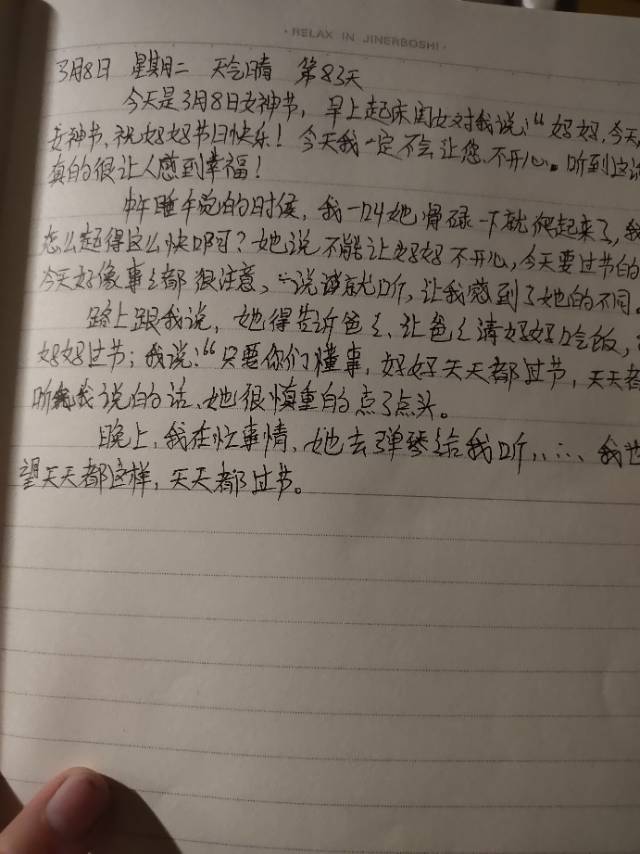 · RELAX IN JINERBOSHI ·
3月8日 星期二 天气晴 第83天
今天是3月8日女神节，早上起床闺女对我说：“妈妈，今天
女神节、祝妈妈节日快乐！今天我一定不会让您不开心。听到这
真的很让人感到幸福！
中午睡午觉的时候，我一叫她骨碌一下就爬起来了，我
怎么起得这么快啊？她说不能让妈妈不开心，今天要过节的
今天好像事事都很注意，一说就听，让我感到了她的不同。
路上跟我说，她得告诉爸爸、让爸爸请妈妈吃饭，
妈妈过节；我说：“只要你们懂事，妈妈天天都过节，天天
听我说的话、她很慎重的点了点头。
晚上，我在忙事情，她去弹琴给我听，……我也
望天天都这样，天天都过节。